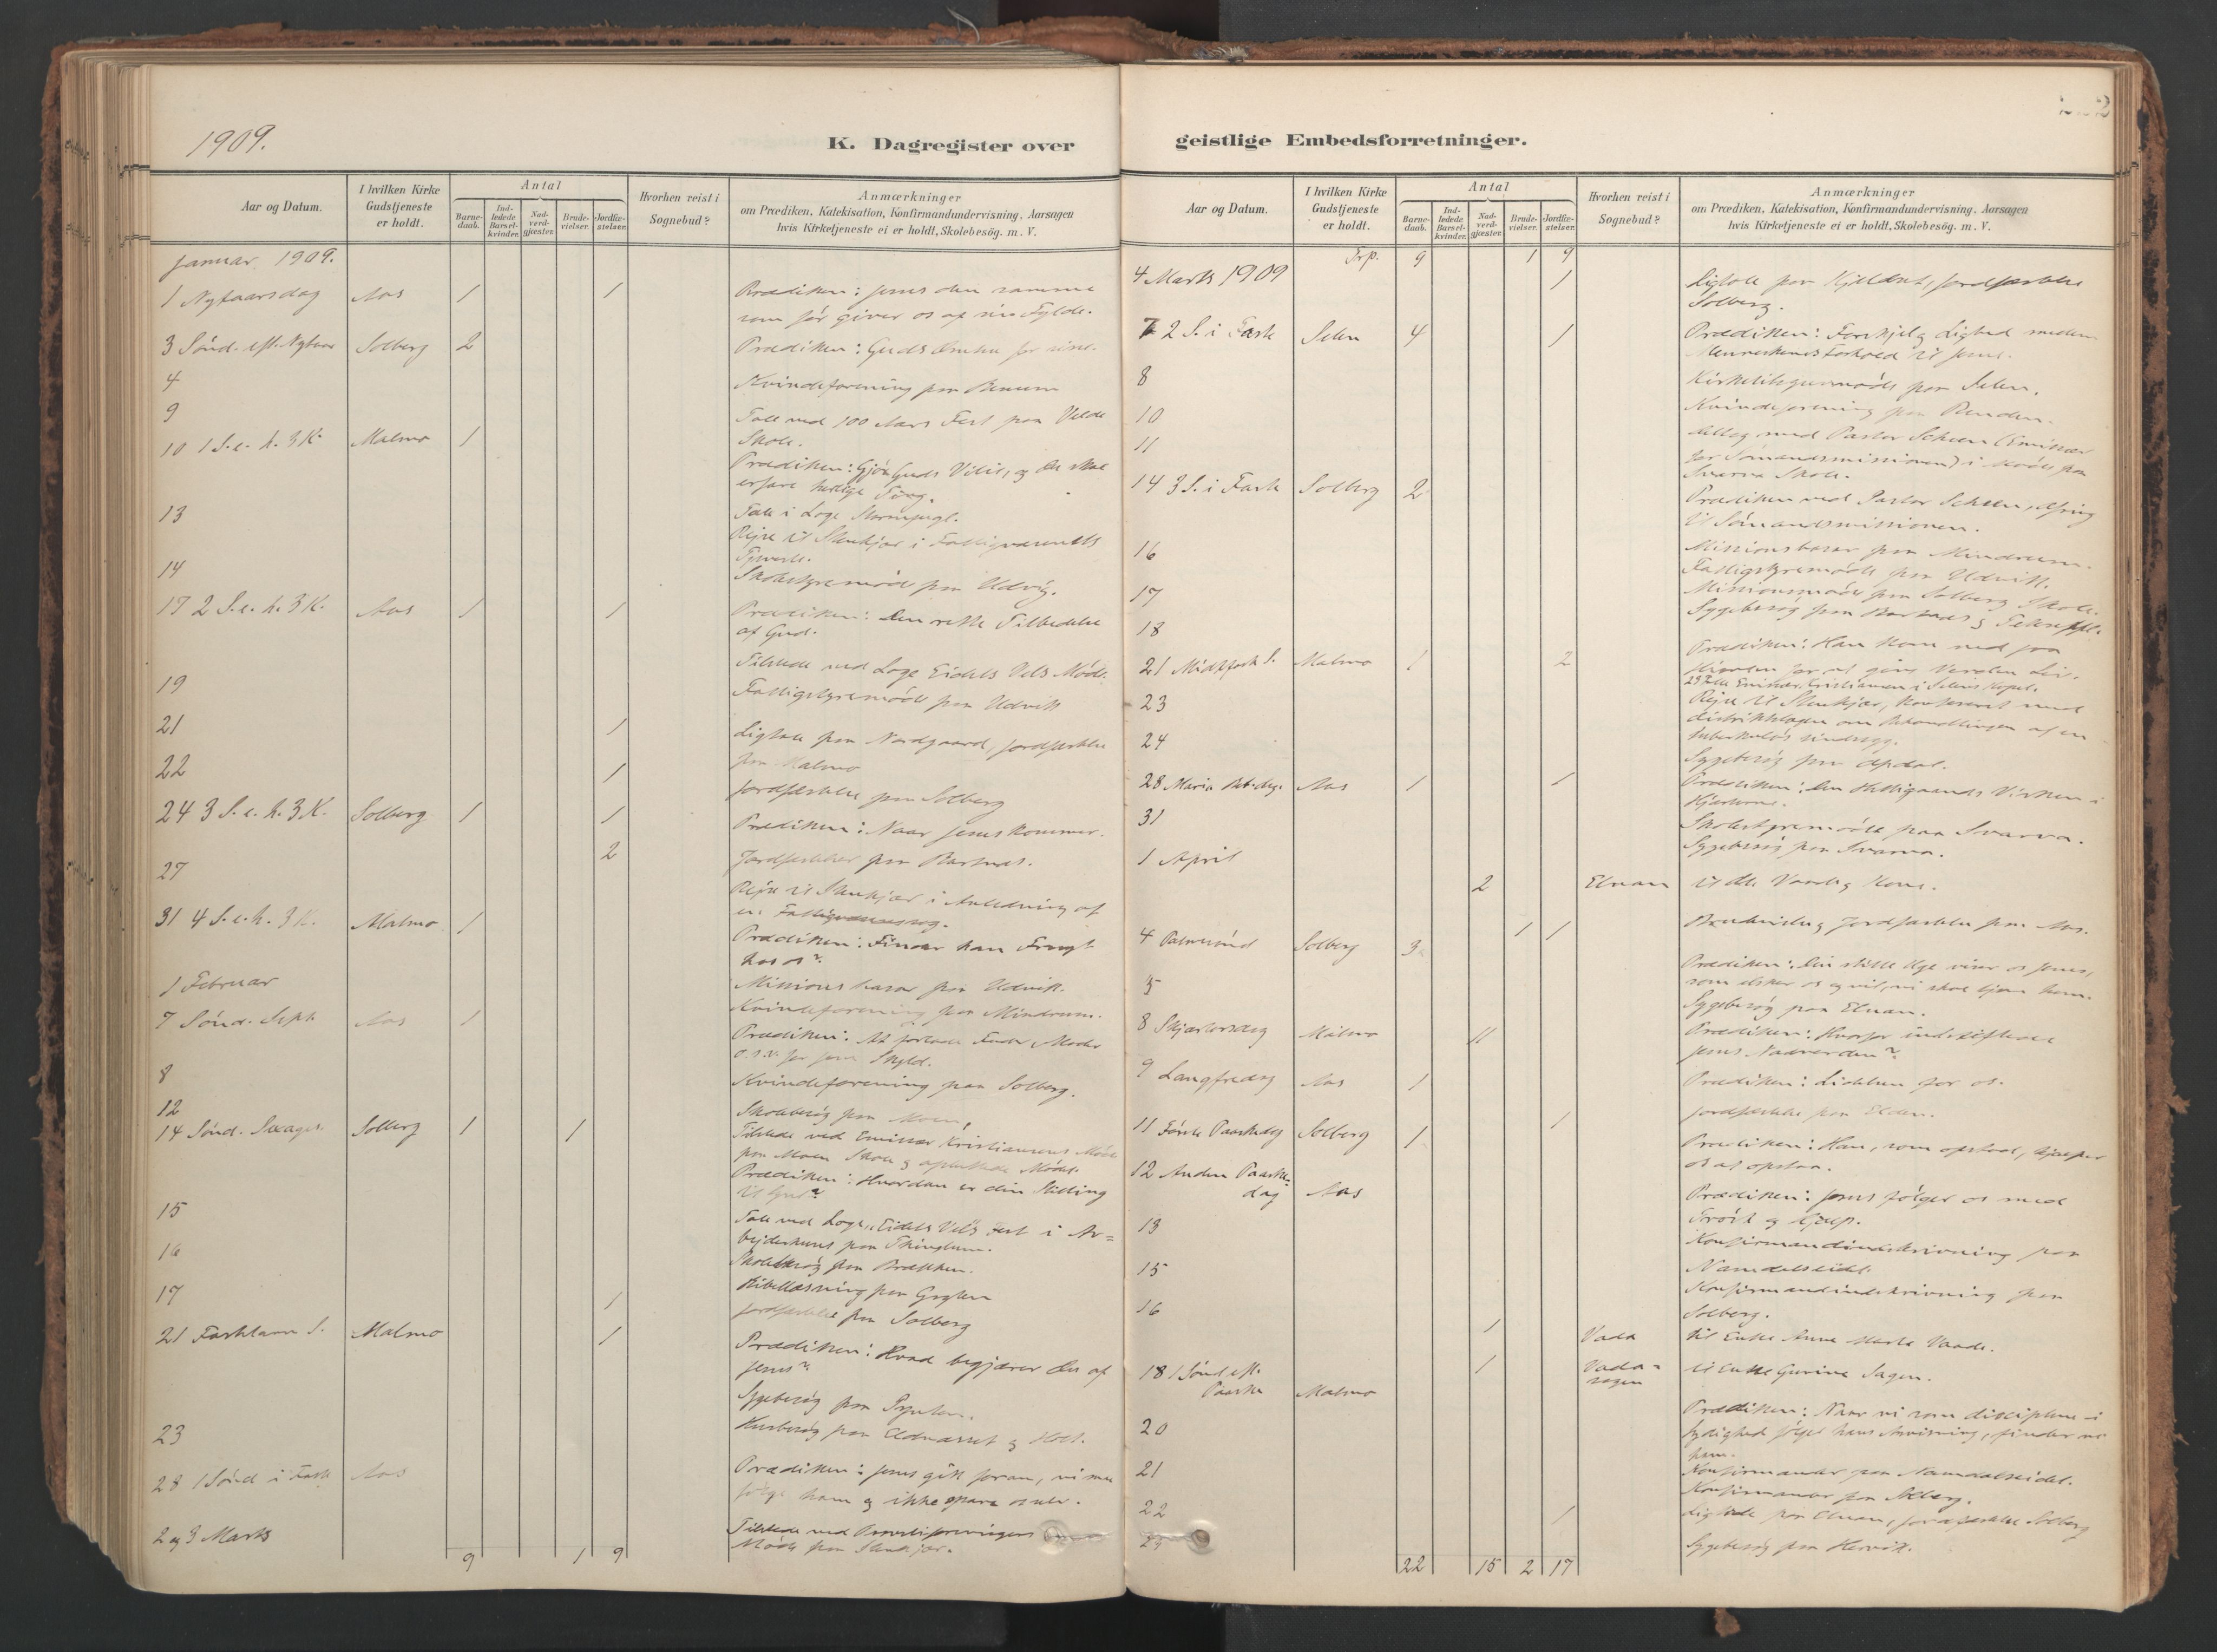 1909.
K. Dagregister over
Aar og Datum.
I hvilken Kirke
Gudstjeneste
er holdt.
Antal
Barne-
daab.
Ind-
ledede
Barsel-
kvinder.
Nad-
verd-
gjæster.
Brude-
vielser.
Jordfæ-
stelser.
Hvorhen reist i
Sognebud?
Anmærkninger
om Prædiken, Katekisation, Konfirmandundervisning, Aarsagen
hvis Kirketjeneste ei er holdt, Skolebesög. m. V.
Januar 1909.
1 Nytaarsdag Aas 1 1 Prædiken: Jesus den samme
som før giver os af sin Fylde.
3 Sønd. eft. Nytaar Solberg 2 Prædiken: Guds Omhu for sine.
4 Kvindeforening paa
9 Tale ved 100 Aars Fest paa Velde
Skole.
10 1 S. e. h. 3 K. Malmo 1
Prædiken: Gjør Guds Vilie, og du skal
erfare herlige Ting.
13 Tale i Loge Stormfugl.
Rejse til Stenkjær i Fattigvæsenets
14
Skolestyremøde paa Udvik.
17 2 S. e. h. 3 K. Aas 1 1 Prædiken: Den rette Tilbedelse
af Gud.
Tilstede ved Loge Eidets Vels Møde.
19 Fattigstyremøde paa Udvik
21 1 Ligtale paa Nordgaard, jordfæstelse
paa Malmo
22 1 Jordfæstelse paa Solberg
24 3 S. e. h. 3 K. Solberg 1 1 Prædiken: Naar Jesus kommer.
2 Jordfæstelser paa
27
Rejse til Stenkjær i Anledning af
en Fattigvæsenssag.
31 4 S. e. h. 3 K. Malmo 1
Prædiken: Finder han Frugt
hos os?
1 Februar Missionsbasar paa Udvik.
Kvindeforening paa Mindrum.
7 Sønd. Sept. Aas 1 Prædiken: At forlade Fader, Moder
o.s.v. for Jesu Skyld.
8 Kvindeforening paa Solberg.
12 Skolebesøg paa Moen,
Tilstede ved Emissær Kristiansens Møde
paa Moen Skole og Mødet.
14 Sønd. Sexages. Solberg 1 1
Prædiken: Hvordan er din Stilling
til Gud?
15 Tale ved Loge „Eidets Vel"s Fest i Ar=
bejdernes paa
16 Skolebesøg paa Brækken.
17 Bibellæsning paa
1 Jordfæstelse paa Solberg
21 Fastelavns S. Malmo 1 Prædiken: Hvad begjærer du af
Jesus?
Sygebesøg paa
23 Husbesøg paa og Holt.
28 1 Sønd i Fast Aas Prædiken: Jesus gik foran, vi maa
følge ham og ikke spare os selv.
2 og 3 Marts Tilstede ved
Møde paa Stenkjær.
9 1 9
geistlige Embedsforretninger.
Aar og Datum.
I hvilken Kirke
Gudstjeneste
er holdt.
Antal
Barne-
daab.
Ind-
ledede
Barsel-
kvinder.
Nad-
verd-
gjæster.
Brude-
vielser.
Jordfæ-
stelser.
Hvorhen reist i
Sognebud?
Anmærkninger
om Prædiken, Katekisation, Konfirmandundervisning, Aarsagen
hvis Kirketjeneste ei er holdt, Skolebesög. m. V.
Trp. 9 1 9
4 Marts 1909 1 Ligtale paa jordfæstelse
Solberg.
7 2 S. i Fast Selen 4 1 Prædiken: Forskjel og Lighed mellem
Menneskenes Forhold til Jesus.
8 paa Selen.
10 Kvindeforening paa
11 Deltog med Pastor Scheen (Emissær
for Sømandsmissionen) i Møde paa
Svarva Skole.
14 3 S. i Faste Solberg 2
Prædiken ved Pastor Scheen,
til Sømandsmissionen.
16 Missionsbasar paa Mindrum.
Fattigstyremøde paa Udvik.
17 Missionsmøde paa Solberg Skole.
18 Sygebesøg paa og
21 Midtfast S. Malmo 1 2 Prædiken: Han kom ned fra
Himmelen for at give Verden Liv.
23 Rejse til Stenkjær, konfereret med
distriktslægen om Behandlingen af en
tuberkuløs sindssyg.
24 Sygebesøg paa
28 Mariæ Aas 1 1 Prædiken: Den Helligaands Virken i
Hjerterne.
31 Skolestyremøde paa Svarva.
Sygebesøg paa Svarva.
1 April
2 Elnan
1 1 Brudevielse og Jordfæstelse paa Aas.
4 Palmesønd Solberg 3
Prædiken: Den stille Uge viser os Jesus,
som elsker os og vil, vi skal tjene ham.
5 Sygebesøg paa Elnan.
8 Skjærtorsdag Malmo 11 Prædiken: Hvorfor indstiftede
Jesus Nadverden?
9 Langfredag Aas 1 Prædiken: Lidelsen for os.
1 Jordfæstelse paa Elden.
11 Første Paaskedag Solberg 1 Prædiken: Han, som opstod, hjælper
os at opstaa.
12 Anden Paaske=
dag Aas Prædiken: Jesus følger os med
Trøst og Hjælp.
13 Konfirmandindskrivning paa
Namdalseidet.
15 Konfirmandindskrivning paa
Solberg.
16 1 Vada til Enke Anne Marta Vaada.
1 Vada-
sagen til Enke Gurine Sagen.
18 1 Sønd eft.
Paaske Malmo
Prædiken: Naar vi som disciplene i
lydighed følger hans Anvisning, finder vi
ham.
20
21 Konfirmander paa Namdalseidet.
Konfirmander paa Solberg.
22 1 Ligtale paa Elnan, jordfæstelse Solberg
23 Sygebesøg paa Hervik.
22 15 2 17